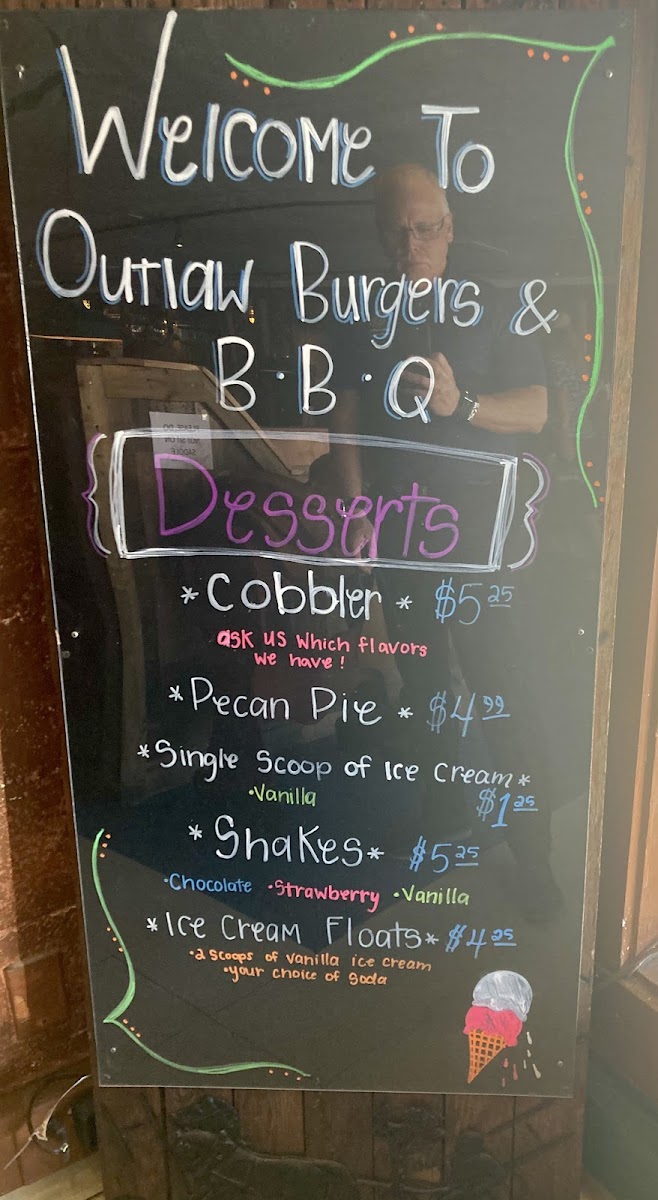 Welcome To
Outlaw Burgers &
B·B·Q
Desserts
*Cobbler* $5.25
ask us which flavors
we have!
*Pecan Pie* $4.99
*Single Scoop of Ice Cream*
•Vanilla $1.25
*Shakes* $5.25
•Chocolate •Strawberry •Vanilla
*Ice Cream Floats* $4.25
•2 scoops of vanilla ice cream
•your choice of soda